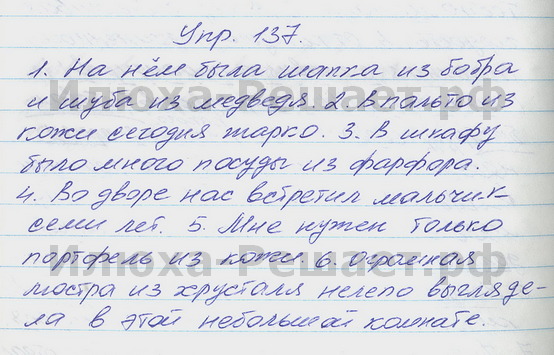 Упр. 137.
1. На нём была шапка из бобра
и шуба из медведя. 2. В пальто из
кожи сегодня жарко. 3. В шкафу
было много посуды из фарфора.
4. Во дворе нас встретил мальчик-
семи лет. 5. Мне нужен только
портфель из кожи. 6. Огромная
люстра из хрусталя нелепо выгляде-
ла в этой небольшой комнате.
Илюха-Решает.рф
Илюха-Решает.рф